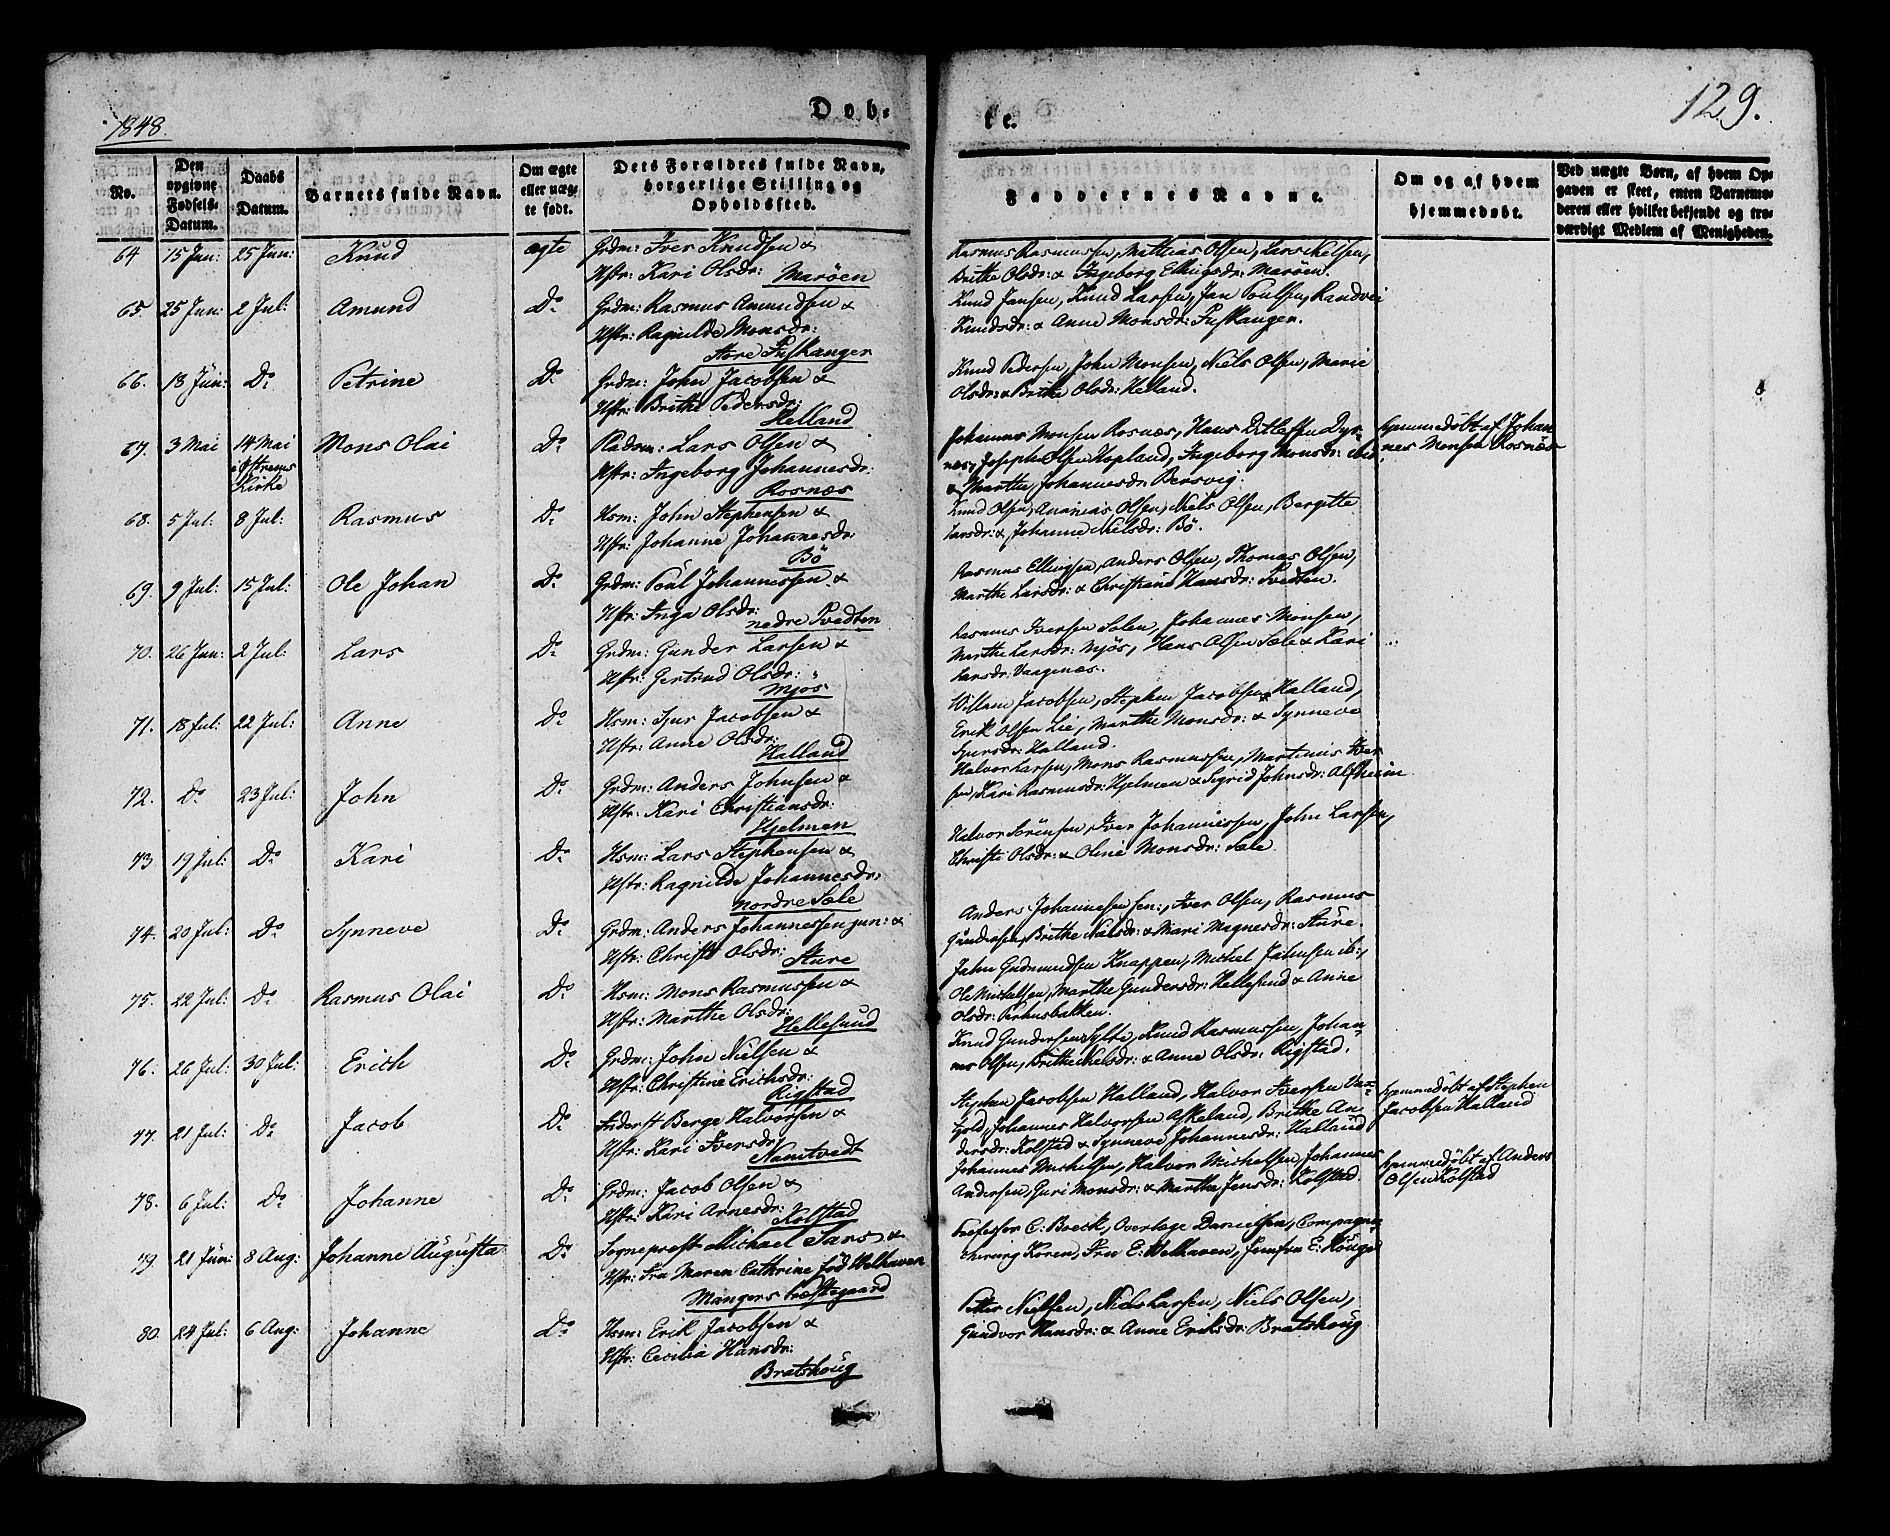 1848.
Døb-
te.
129.
No.
Den opgivne Fødsels-Datum.
Daabs Datum.
Barnets fulde Navn.
Om ægte eller uæg-te født.
Dets Forældres fulde Navn, borgerlige Stilling og Opholdssted.
Faddernes Navne.
Om og af hvem hjemmedøbt.
Ved uægte Børn, af hvem Op-gaven er skeet, enten Barnemo-deren eller hvilket bekjendt og tro-værdigt Medlem af Menigheden.
64 15 Jun: 25 Jun: Knud ægte Grdm: Iver Knudsen &
Hstr: Kari Olsdr: Marøen
Rasmus Rasmussen, Mathias Olsen, Lars Nelsen,
Brithe Olsdr: & Ingeborg Ellingsdr: Marøen.
65. 25 Jun: 2 Jul: Amund Do Grdm: Rasmus Amundsen &
Hstr: Ragnilde Monsdr:
Store Fuskanger
Knud Jansen, Knud Larsen, Jan Poulsen, Randvei
Knudsdr: & Anne Monsdr: Fuskanger.
66. 13 Jun: Do Petrine Do Grdm: John Jacobsen &
Hstr: Brithe Pedersdr:
Helland
Knud Pedersen, John Monsen, Niels Olsen, Marie
Olsdr: & Brithe Olsdr: Helland.
67. 3 Mai 14 Mai i Østrems Kirke Mons Olai Do Pladsm: Lars Olsen &
Hstr: Ingeborg Johannesdr:
Rosnæs
Johannes Monsen Rosnæs, Hans Ditlefsen Dyr-
næs, Joseph Olsen Hopland, Ingeborg Monsdr: ibid:
& Marthe Johannesdr: Bersvig.
hjemmedøbt af Johan
nes Monsen Rosnæs
68. 5 Jul: 8 Jul: Rasmus Do Hsm: John Stephensen &
Hstr: Johanne Johannesdr:
Bö
Knud Olsen, Ananias Olsen, Niels Olsen, Bergitte
Larsdr: & Johanne Nielsdr: Bö.
69. 9 Jul: 15 Jul: Ole Johan Do Grdm: Poul Johannessen &
Hstr: Inga Olsdr:
nedre Tvedten
Rasmus Ellingsen, Anders Olsen, Thomas Olsen,
Marthe Larsdr: & Christiane Hansdr: Tvedten.
70. 26 Jun: 2 Jul: Lars Do Grdm: Gunder Larsen &
Hstr: Gertrud Olsdr:
Mjøs
Rasmus Iversen Solen, Johannes Monsen,
Marthe Larsdr: Mjøs, Hans Olsen Sæle & Kari
Larsdr: Vaagenæs.
71. 18 Jul: 22 Jul: Anne Do Hsm: Sjur Jacobsen &
Hstr: Anne Olsdr:
Halland
Willum Jacobsen, Stephen Jacobsen Halland,
Erik Olsen Lie, Marthe Monsdr: & Synneve
Sjursdr: Halland.
72. Do 23 Jul: John Do Grdm: Anders Johnsen &
Hstr: Kari Christiansdr:
Hjelmen
Halvor Larsen, Mons Rasmussen, Martinus Iver
sen, Kari Rasmusdr: Hjelmen & Sigrid Johnsdr: Alfheim
73. 19 Jul: Do Kari Do Hsm: Lars Stephensen &
Hstr: Ragnilde Johannesdr:
nordre Sæle
Halvor Sörensen, Iver Johannessen, John Larsen,
Christi Olsdr: & Oline Monsdr: Sæle.
74. 20 Jul: Do Synneve Do Grdm: Anders Johannessen jun: &
Hstr: Christi Olsdr:
Sture
Anders Johannesen sen:, Iver Olsen, Rasmus
Gundersen, Brithe Nilsdr: & Mari Magnesdr: Sture.
75. 22 Jul: Do Rasmus Olai Do Hsm: Mons Rasmussen &
Hstr: Marthe Olsdr:
Hellesund
John Gudmundsen Knappen, Michel Johnsen ib:,
Ole Michelsen, Marthe Gundersdr: Hellesund & Anne
Olsdr:
76. 26 Jul: 30 Jul: Erich Do Grdm: John Nielsen &
Hstr: Christine Erichsdr:
Rigstad
Knud Gundersen Sylte, Knud Rasmussen, Johan-
nes Olsen, Brithe Nielsdr: & Anne Olsdr: Rigstad.
77. 21 Jul: Do Jacob Do Berge Halvorsen &
Hstr: Kari Iversdr:
Namtvedt
Stephen Jacobsen Halland, Halvor Iversen
Johannes Halvorsen Askeland, Brithe An-
dersdr: Kolstad & Synneve Johannesdr: Halland
hjemmedøbt af Stephen
Jacobsen Halland
78. 6 Jul: Do Johanne Do Grdm: Jacob Olsen &
Hstr: Kari Arnesdr:
Kolstad
Johannes Michelsen, Halvor Michelsen, Johannes
Andersen, Guri Monsdr: & Marthe Jensdr: Kolstad
hjemmedøbt af Anders
Olsen Kolstad
79. 21 Jun: 8 Aug: Johanne Augusta Do Sogneprest Michael Sars &
Hstr: Fru Maren Cathrine fød Welhaven
Mangers Præstegaard
Professor C: Boeck, Overlæge Danielsen, Compagni-
chirurg Koren, Fru E: Welhaven, Jomfru E: Kouge
80. 24 Jul: 6 Aug: Johanne Do Hsm: Erik Jacobsen &
Hstr: Cecilia Hansdr:
Bratshoug
Peter Nielsen, Niels Larsen, Niels Olsen,
Gundvor Hansdr: & Anne Eriksdr: Bratshoug